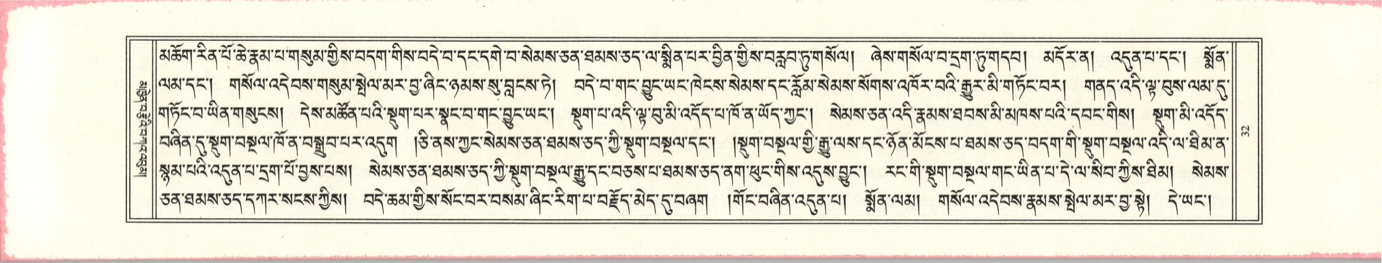 མཆོག་རིན་པོ་ཆེ་རྣམ་པ་གསུམ་གྱིས་བདག་གིས་བདེ་བ་དང་དགེ་བ་སེམས་ཅན་ཐམས་ཅད་ལ་སྨིན་པར་བྱིན་གྱིས་བརླབ་ཏུ་གསོལ། ཞེས་གསོལ་བ་དྲག་ཏུ་གདབ། མདོར་ན། འདུན་པ་དང་། སྨོན་
ལམ་དང་། གསོལ་འདེབས་གསུམ་སྤེལ་མར་བྱ་ཞིང་ཉམས་སུ་བླངས་ཏེ། བདེ་བ་གང་བྱུང་ཡང་ཁེངས་སེམས་དང་རློམ་སེམས་སོགས་འཁོར་བའི་རྒྱུར་མི་གཏོང་བར། གནད་འདི་ལྟ་བུས་ལམ་དུ་
གཏོང་བ་ཡིན་གསུངས། དེས་མཚོན་པའི་སྡུག་པར་སྣང་བ་གང་བྱུང་ཡང་། སྡུག་པ་འདི་ལྟ་བུ་མི་འདོད་པ་ཁོ་ན་ཡོད་ཀྱང་། སེམས་ཅན་འདི་རྣམས་ཐབས་མི་མཁས་པའི་དབང་གིས། སྡུག་མི་འདོད་
བཞིན་དུ་སྡུག་བསྔལ་ཁོ་ན་བསྒྲུབ་པར་འདུག །ཅི་ནས་ཀྱང་སེམས་ཅན་ཐམས་ཅད་ཀྱི་སྡུག་བསྔལ་དང་། །སྡུག་བསྔལ་གྱི་རྒྱུ་ལས་དང་ཉོན་མོངས་པ་ཐམས་ཅད་བདག་གི་སྡུག་བསྔལ་འདི་ལ་ཐིམ་ན་
སྙམ་པའི་འདུན་པ་དྲག་པོ་བྱས་པས། སེམས་ཅན་ཐམས་ཅད་ཀྱི་སྡུག་བསྔལ་རྒྱུ་དང་བཅས་པ་ཐམས་ཅད་ནག་ཕུང་གིས་འདུས་བྱུང་། རང་གི་སྡུག་བསྔལ་གང་ཡིན་པ་དེ་ལ་སིབ་ཀྱིས་ཐིམ། སེམས་
ཅན་ཐམས་ཅད་དཀར་སངས་ཀྱིས། བདེ་ཆམ་གྱིས་སོང་བར་བསམ་ཞིང་རིག་པ་བརྗོད་མེད་དུ་བཞག །གོང་བཞིན་འདུན་པ། སྨོན་ལམ། གསོལ་འདེབས་རྣམས་སྤེལ་མར་བྱ་སྟེ། དེ་ཡང་།